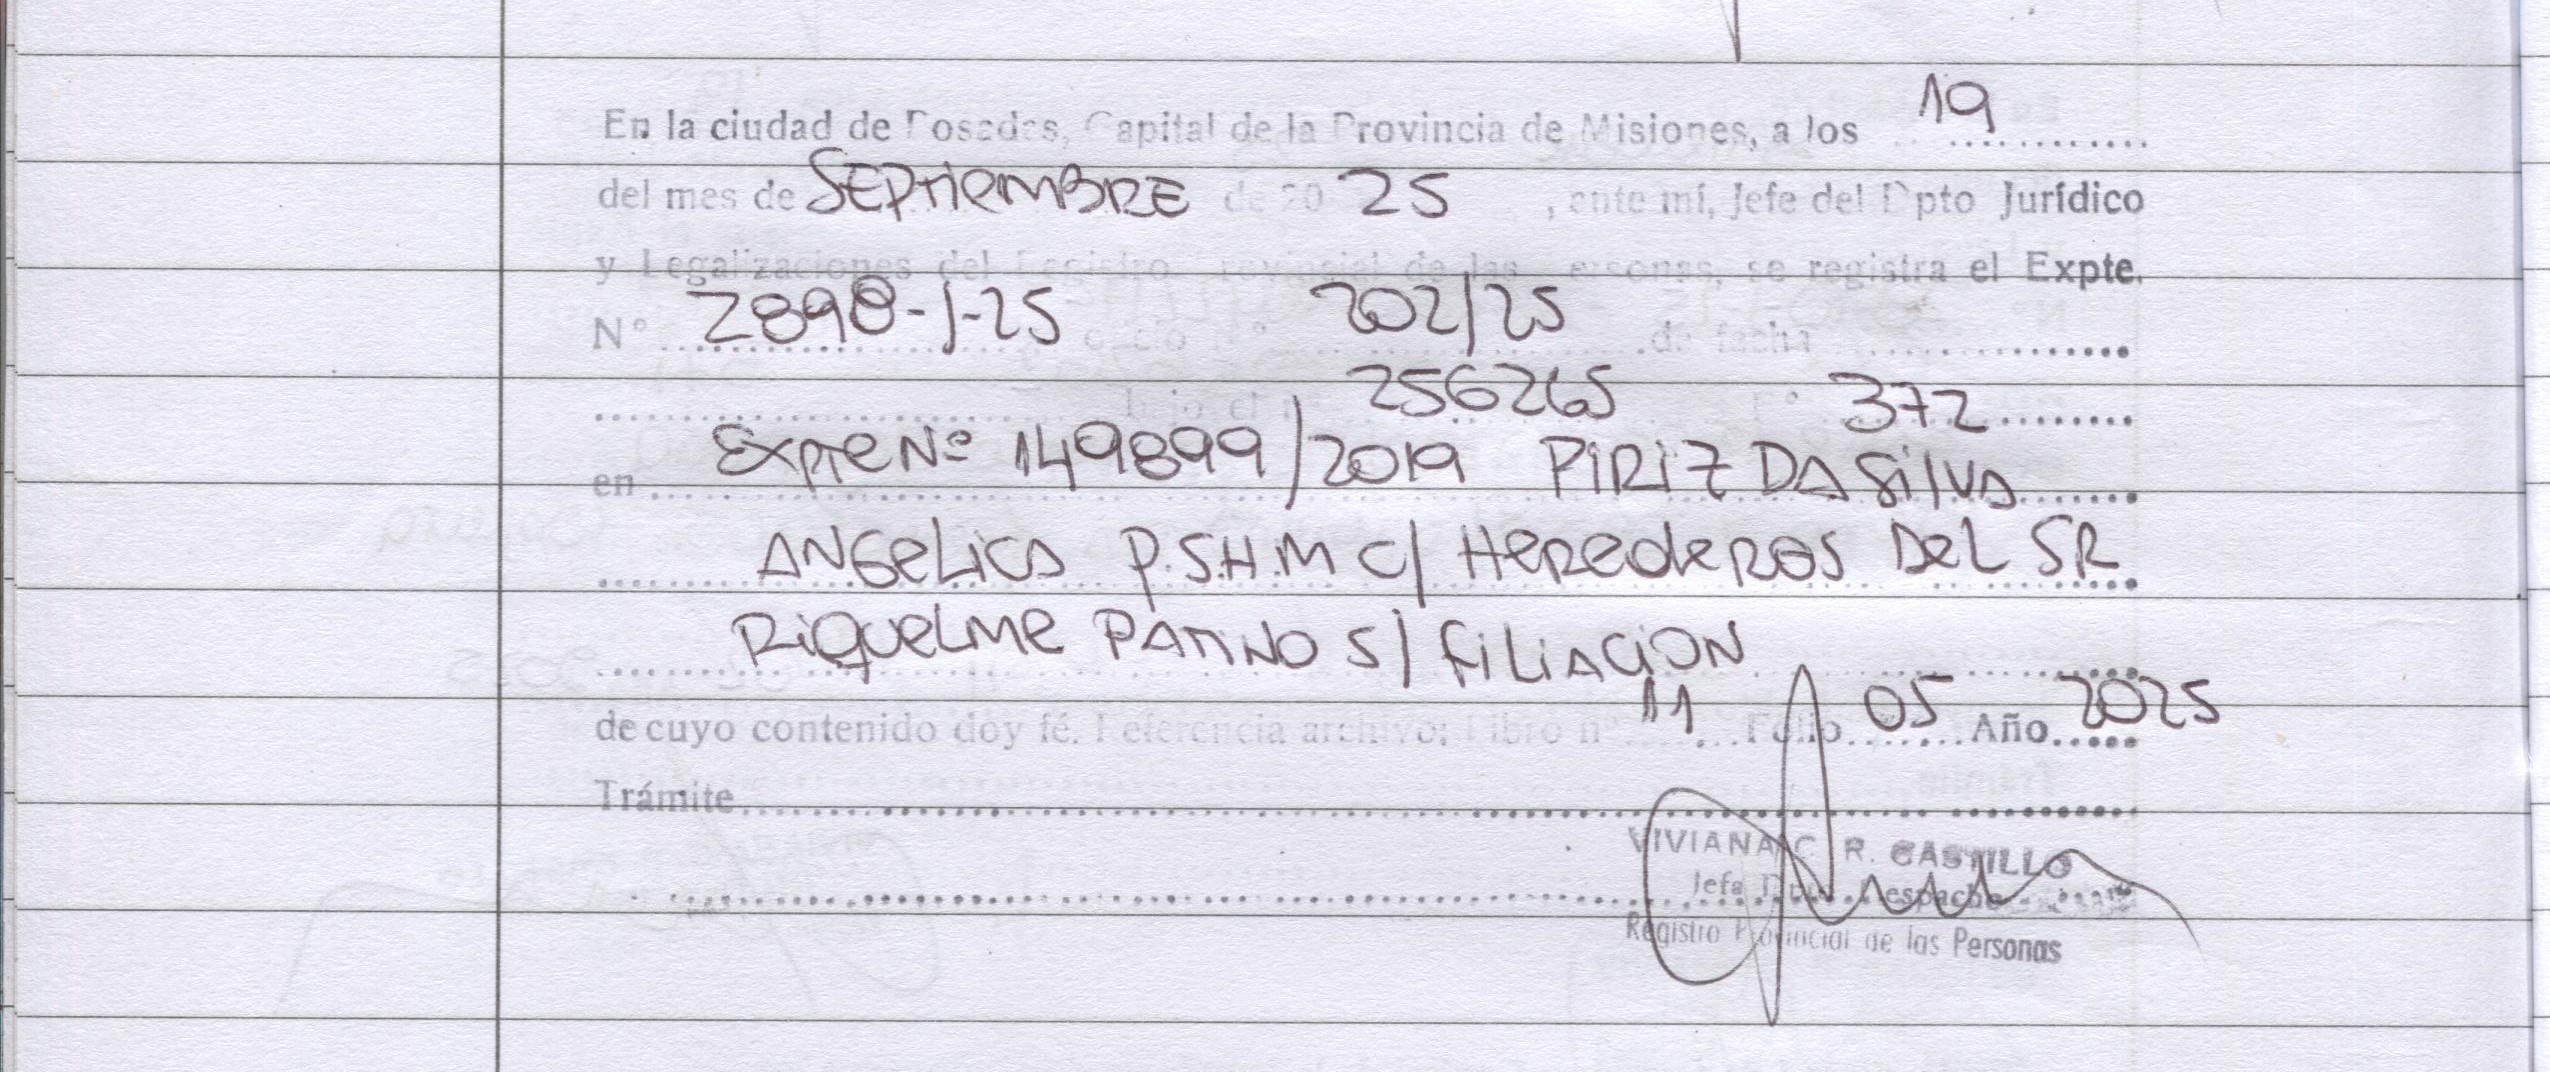 En la ciudad de Posadas, Capital de la Provincia de Misiones, a los 19
del mes de SEPTIEMBRE de 20 25 , ante mí, Jefe del Dpto Jurídico
y Legalizaciones del Registro Provincial de las Personas, se registra el Expte.
N° 2898-J-25 oficio N° 202/25 de fecha
bajo el 256265 N° 372
en Expte Nº 149899/2019 PIRIZ DA SILVA
ANGELICA P.S.H.M C/ HEREDEROS DEL SR
RIQUELME PATIÑO S/ FILIACION
de cuyo contenido doy fé. Referencia archivo; Libro n° 11 Folio 05 Año 2025
Trámite
VIVIANA C. R. CASTILLO
Jefa Dpto. Despacho
Registro Provincial de las Personas